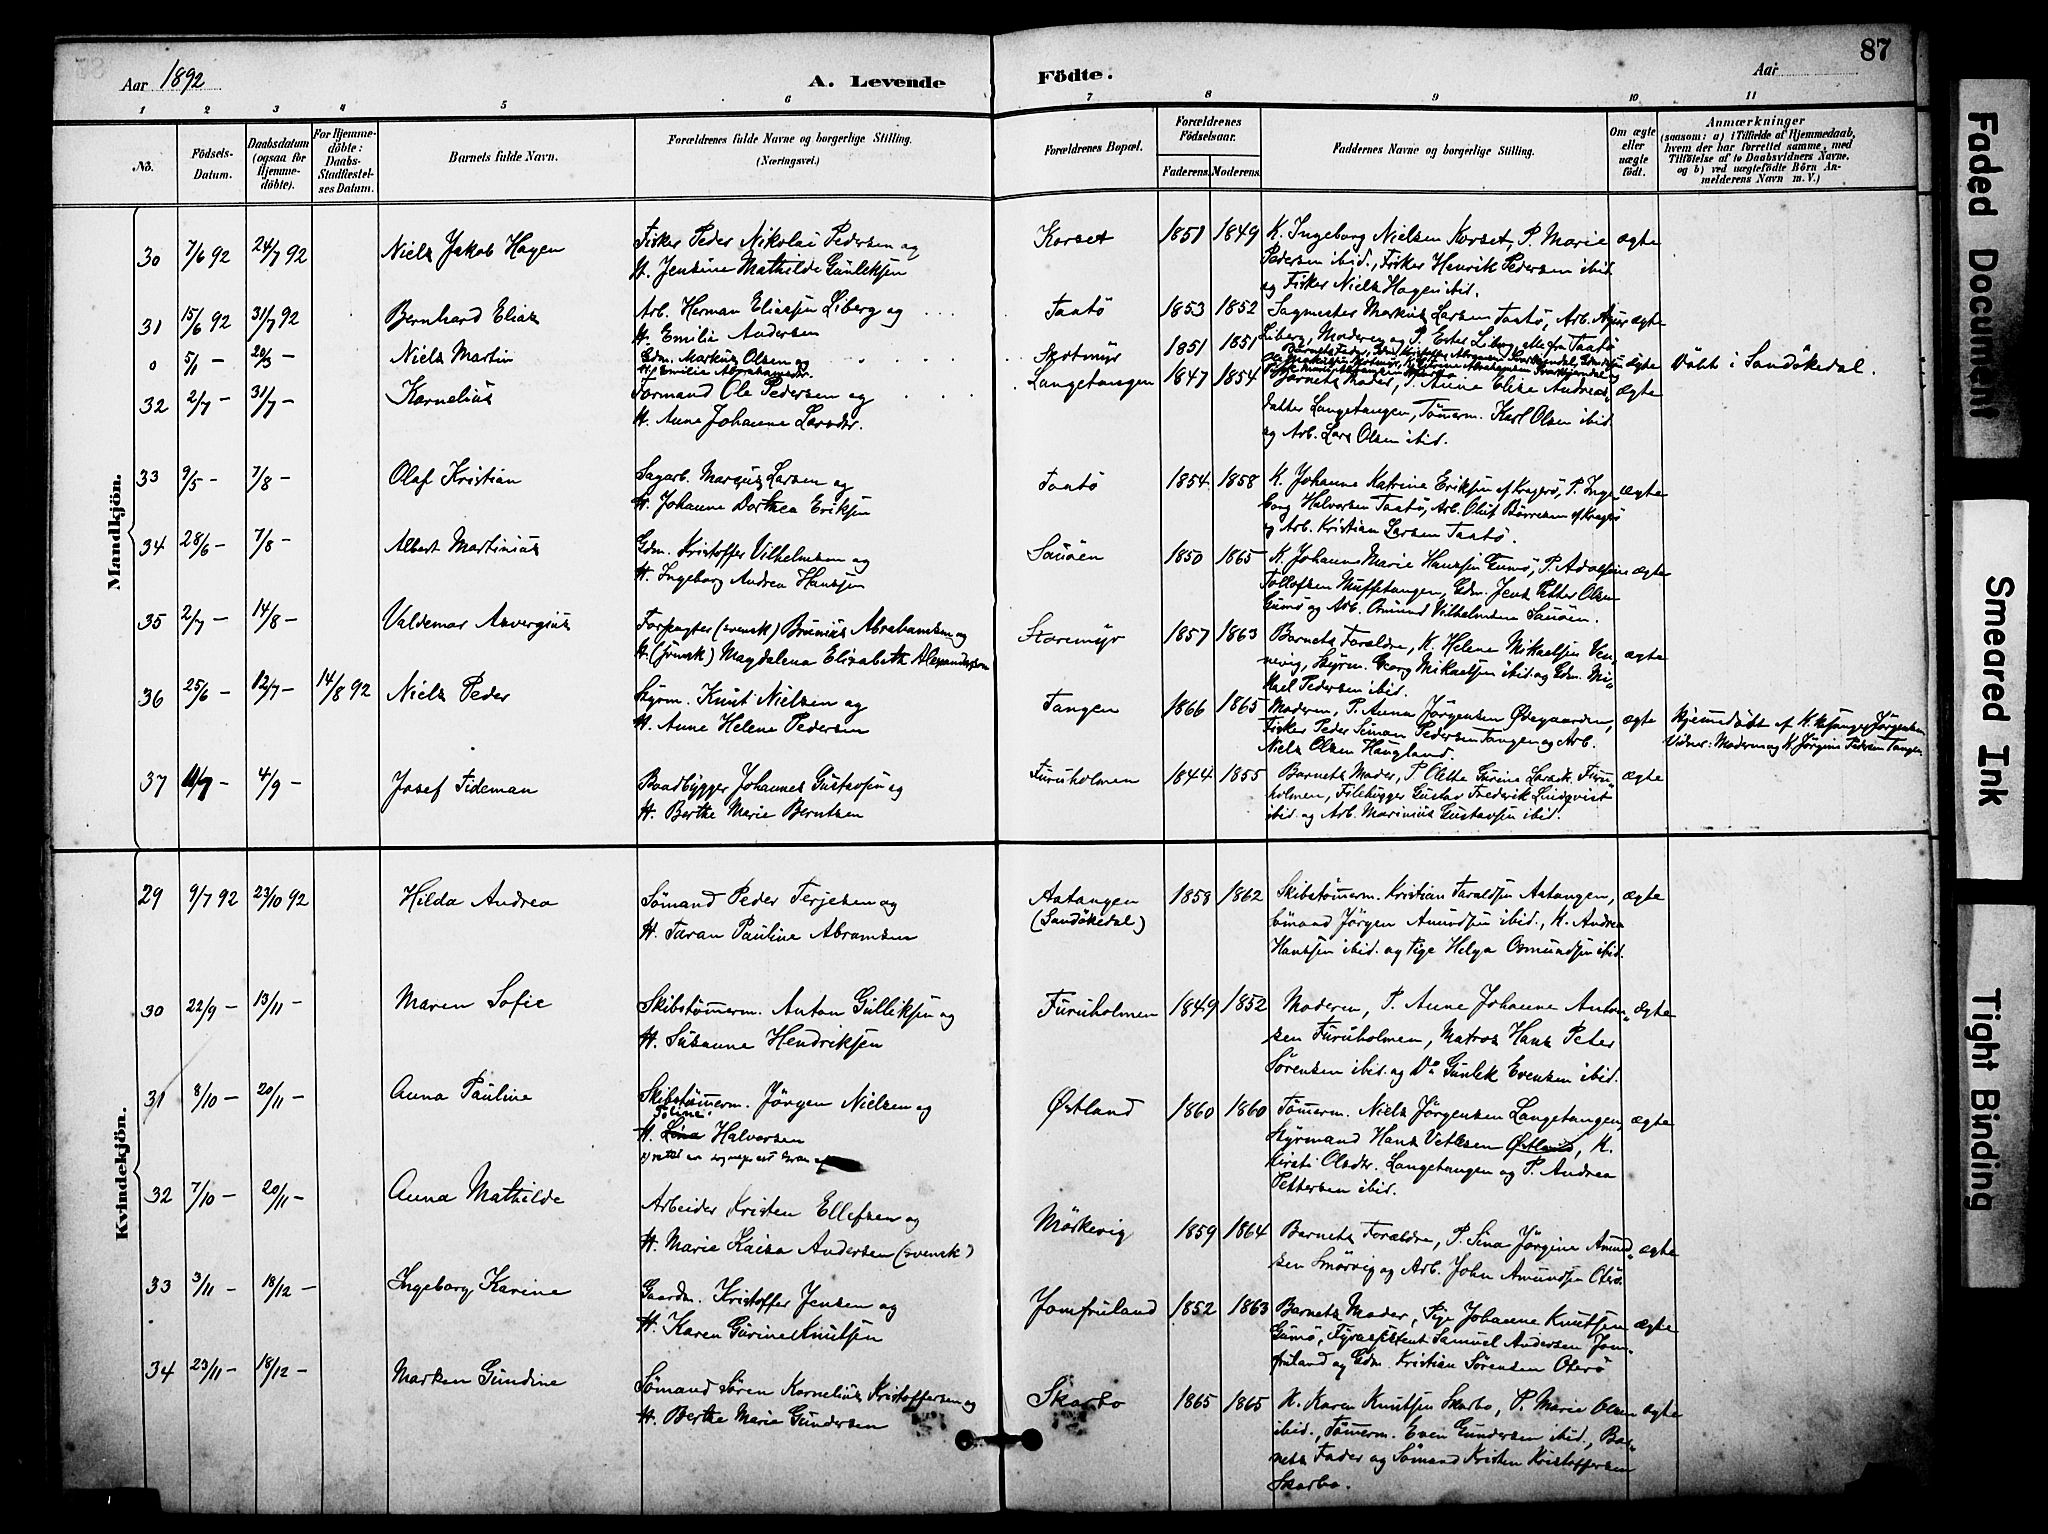 87
Aar 1892
A. Levende
Födte.
Aar
1 2 3 4 5 6 7 8 9 10 11
No.
Födsels-Datum.
Daabsdatum (ogsaa for Hjemmedöbte).
For Hjemmedöbte: Daabs-Stadfæstelses Datum.
Barnets fulde Navn.
Forældrenes fulde Navne og borgerlige Stilling.
(Næringsvei.)
Forældrenes Bopæl.
Forældrenes Födselsaar.
Faderens. Moderens.
Faddernes Navne og borgerlige Stilling.
Om ægte eller uægte födt.
Anmærkninger
(saasom: a) i Tilfælde af Hjemmedaab,
hvem der har forrettet samme, med
Tilföielse af to Daabsvidners Navne,
og b) ved uægtefödte Börn Anmelderens Navn m. V.)
Mandkjön.
30 7/6 92 24/7 92 Niels Jakob Hagen
Fisker Peder Nikolai Pedersen og
H. Jensine Mathilde Gunleksen
Korset 1851 1849
K. Ingeborg Nielsen Korset, P. Marie ægte
Pedersen ibid., Fisker Henrik Pedersen ibid.
og Fisker Niels Hagen ibid.
31 15/6 92 31/7 92 Bernhard Elias
Arb. Herman Eliassen Liberg og
H. Emilie Andersen
Taatö 1853 1852
Sagmester Markus Larsen Taatö, Arb. ægte
Liberg, Moderen og P. Ester Liberg, alle fra Taatö
0 5/1 - 20/3 - Niels Martin
Gdm. Markus Olsen og
H. Emilie Abrahamsdr.
Skotmyr 1851 1851
ægte Döbt i Sandökedal.
32 2/7 - 31/7 - Kornelius
Formand Ole Pedersen og
H. Anne Johanne Larsdr.
Langetangen 1847 1854
Barnets Moder, P. Anne Elise Andreas- ægte
datter Langetangen, Tömerm. Karl Olsen ibid.
og Arb. Lars Olsen ibid.
33 9/5 - 7/8 - Olaf Kristian
Sagarb. Markus Larsen og
H. Johanne Dorthea Eriksen
Taatö 1854 1858
K. Johanne Katrine Eriksen af Kragerö, P. Inge- ægte
borg Halvorsen Taatö, Arb. Oluf Börresen af Kragerö
og Arb. Kristian Larsen Taatö.
34 28/6 - 7/8 - Albert Martinius
Gdm. Kristoffer Vilhelmsen og
H. Ingeborg Andrea Hanssen
Sauöen 1850 1865
K. Johanne Marie Hanssen Gumö, P. Adolfine ægte
Tollofsen Muffetangen, Gdm. Jens Petter Olsen
Gumö og Arb. Osmund Vilhelmsen Sauöen.
35 2/7 - 14/8 - Valdemar Ansverius
Forpagter (svensk) Brunius Abrahamsen og
H. (svensk) Magdalena Elisabeth Alexandersson
Storemyr 1857 1863
Barnets Forældre, K. Helene Mikaelsen Ven- ægte
nevig, Styrm. Georg Mikaelsen ibid. og Gdm. Mi-
kael Pedersen ibid.
36 25/6 - 12/7 - 14/8 92 Niels Peder
Styrm. Knut Nielsen og
H. Anne Helene Pedersen
Tangen 1866 1865
Moderen, P. Anna Jörgensen Ödegaarden, ægte
Fisker Peder Simon Pedersen Tangen og Arb.
Niels Olsen Haugland.
Hjemmedöbt af Kirkesanger Jörgensen
Vidner: Moderen og K. Jörgine Pedersen Tangen
37 11/7 - 4/9 - Josef Tideman
Baadbygger Johannes Gustavsen og
H. Berthe Marie Berntsen
Furuholmen 1844 1855
Barnets Moder, P. Olette Gurine Larsdr. Furu- ægte
holmen, Filehugger Gustav Frederik Lindqvist
ibid. og Arb. Marinius Gustavsen ibid.
Kvindekjön.
29 9/7 92 23/10 92 Hilda Andrea
Sömand Peder Terjesen og
H. Taran Pauline Abramsen
Aatangen 1858 1862
(Sandökedal)
Skibstömerm. Kristian Taraldsen Aatangen, ægte
Sömand Jörgen Amundsen ibid., K. Andrea
Hanssen ibid. og Pige Helga Osmundsen ibid.
30 22/9 - 13/11 - Maren Sofie
Skibstömerm. Anton Gulliksen og
H. Susanne Hendriksen
Furuholmen 1849 1852
Moderen, P. Anne Johanne Anton- ægte
sen Furuholmen, Matros Hans Peter
Sörensen ibid. og Do Gunlek Evensen ibid.
31 8/10 - 20/11 - Anna Pauline
Skibstömerm. Jörgen Nielsen og
Toline
H. Lina Halvorsen
Östland 1860 1860
Tömerm. Niels Jörgensen Langetangen, ægte
Styrmand Hans Vetlesen Östland, K.
Kirsti Olsdr. Langetangen og P. Andrea
Pettersen ibid.
32 7/10 - 20/11 - Anna Mathilde
Arbeider Kristen Ellefsen og
H. Marie Kaisa Andersen (svensk)
Mörkevig 1859 1864
Barnets Forældre, P. Sina Jörgine Amund- ægte
sen Smörvig og Arb. John Amundsen Oterö.
33 3/11 - 18/12 - Ingeborg Karine
Gaardm. Kristoffer Jensen og
H. Karen Gurine Knutsen
Jomfruland 1852 1863
Barnets Moder, Pige Johanne Knutsen ægte
Gumö, Fyrassistent Samuel Andersen Jom-
fruland og Gdm. Kristian Sörensen Oterö
34 23/11 - 18/12 - Marken Gundine
Sömand Sören Kornelius Kristoffersen og
H. Berthe Marie Gundersen
Skarbo 1865 1865
K. Karen Knutsen Skarbo, P. Marie Olsen ægte
ibid., Tömerm. Even Gundersen ibid., Bar-
nets Fader og Sömand Kristen Kristoffersen
Skarbo.
Faded Document
Smeared Ink
Tight Binding